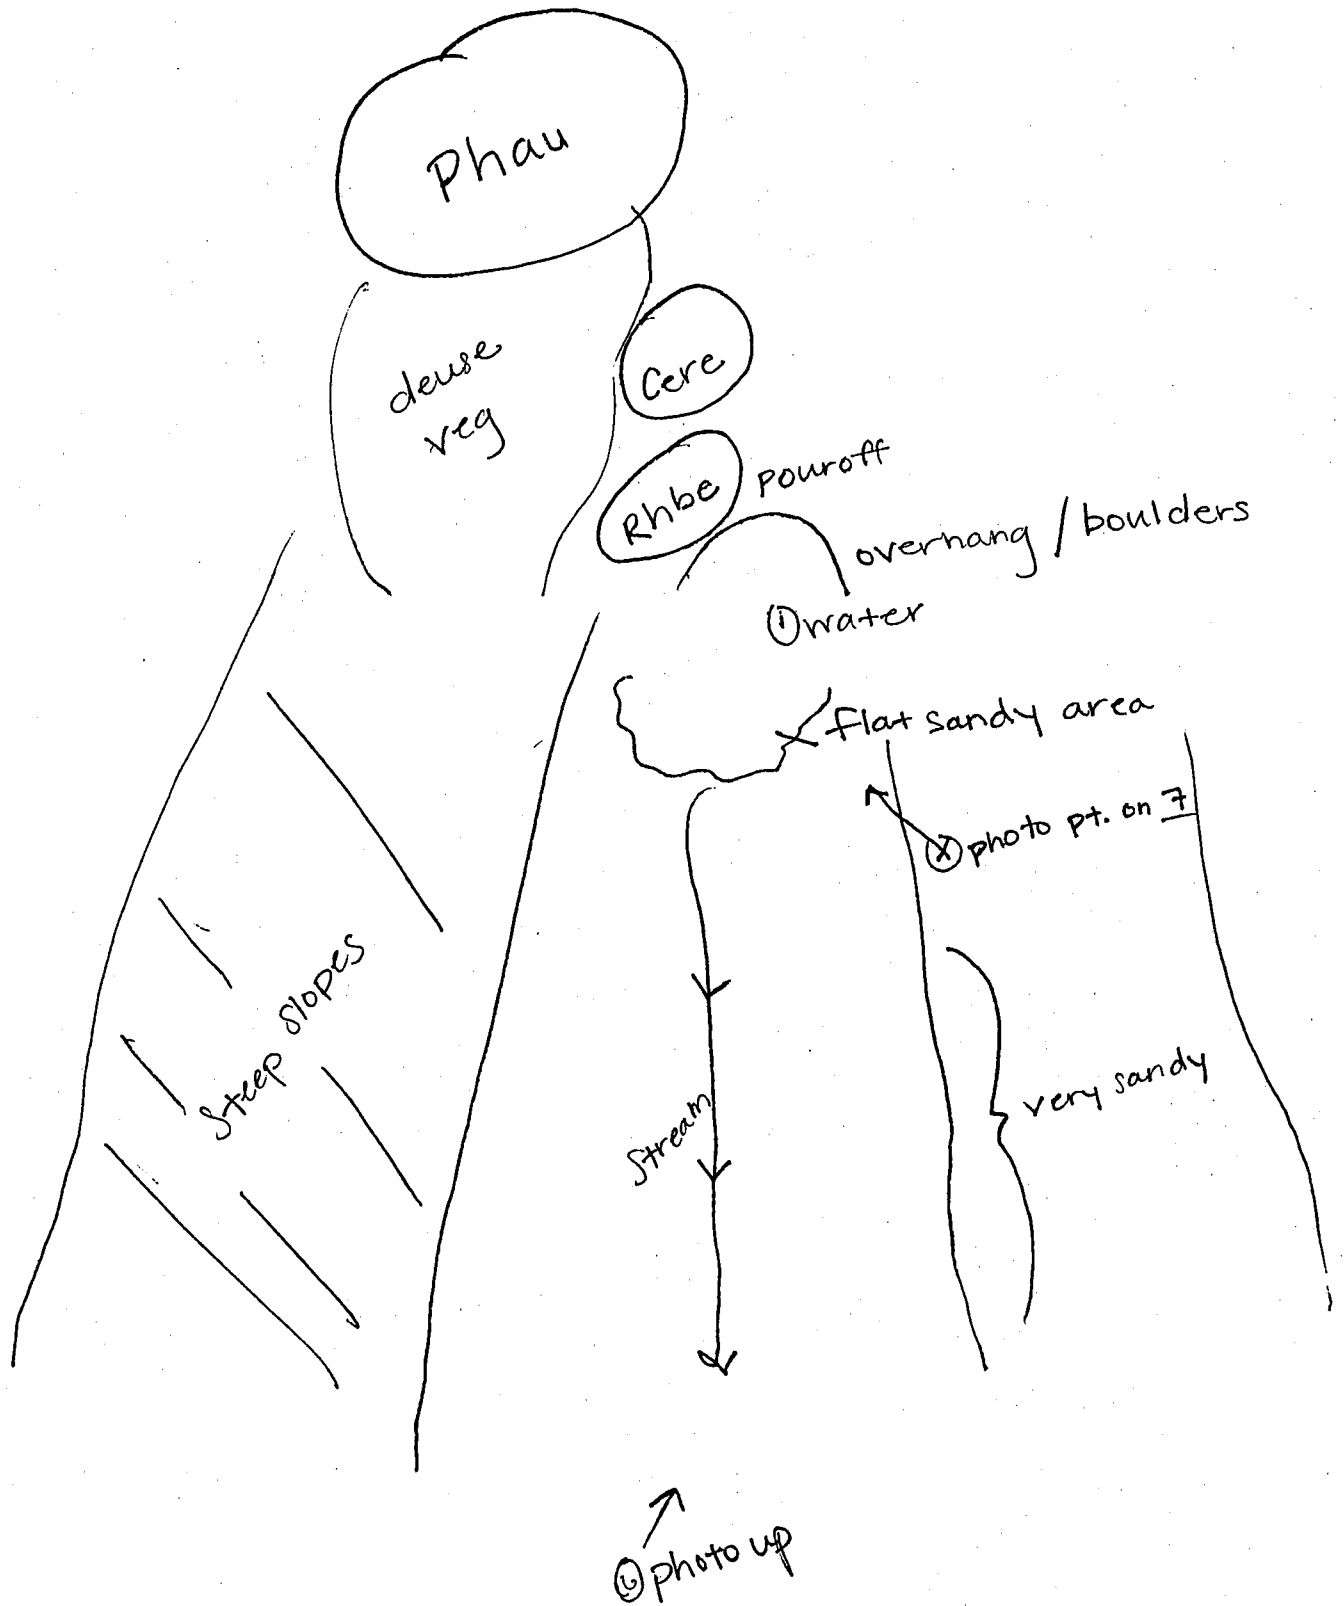 Phau
dense
veg
Cere
Rhbe
pouroff
overhang / boulders
① water
flat sandy area
ⓧ photo pt. on 7
steep slopes
very sandy
stream
photo up